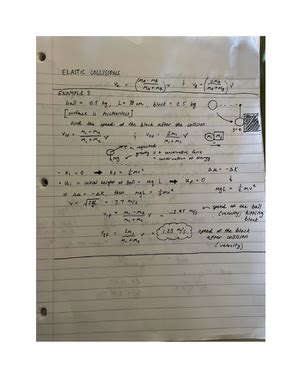 ELASTIC COLLISIONS
v_A = (m_A - m_B / m_A + m_B) v ; v_B = (2m_A / m_A + m_B) v
EXAMPLE 3.
ball = 0.5 kg, L = 70 cm, block = 2.5 kg
[surface is frictionless]
find the speed of the block after the collision
v_1f = m_1 - m_2 / m_1 + m_2 v ; v_2f = 2m_1 / m_1 + m_2 v
T is neglected
mg
gravity is a conservative force
∴ conservation of energy
y = 0
- K_i = 0 → K_f = ½mv²
ΔU = -ΔK
- U_i = initial height of ball = mgL → U_f = 0
mgL = ½mv²
if ΔU = -ΔK, then mgL = ½mv²
v = √2gL = 3.7 m/s
v_1f = m_1 - m_2 / m_1 + m_2 v = -2.47 m/s
→ speed of the ball (velocity) hitting block
v_2f = 2m_1 / m_1 + m_2 v = 1.23 m/s
speed of the block after collision (velocity)